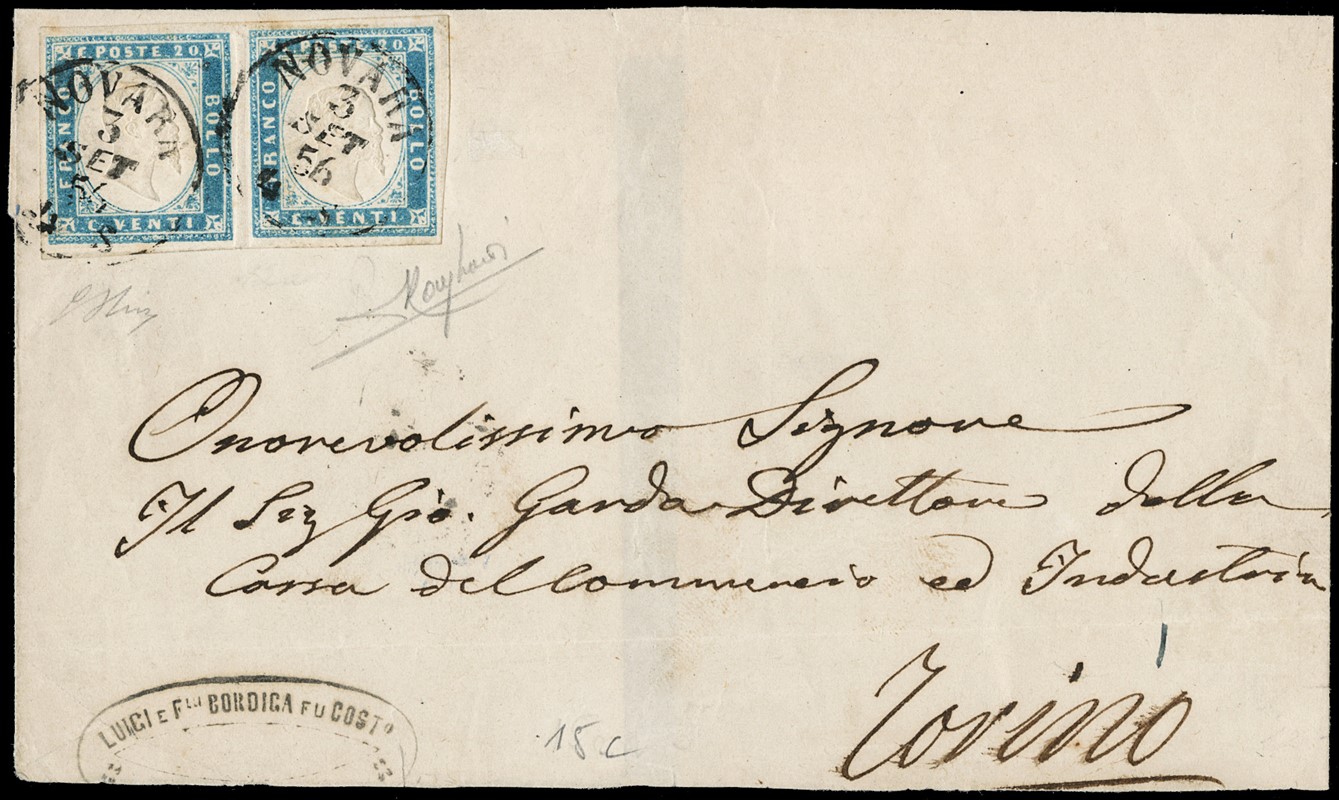 C. POSTE 20. C. POSTE 20.
FRANCO BOLLO FRANCO BOLLO
C. VENTI C. VENTI
NOVARA NOVARA
3 3
SET SET
56 56
S
Onorevolissimo Signore
Il Sig Gio. Garda Direttore della
Cassa del Commercio ed Industria
Torino
LUIGI E Flli BORDIGA FU COSTo
15 c